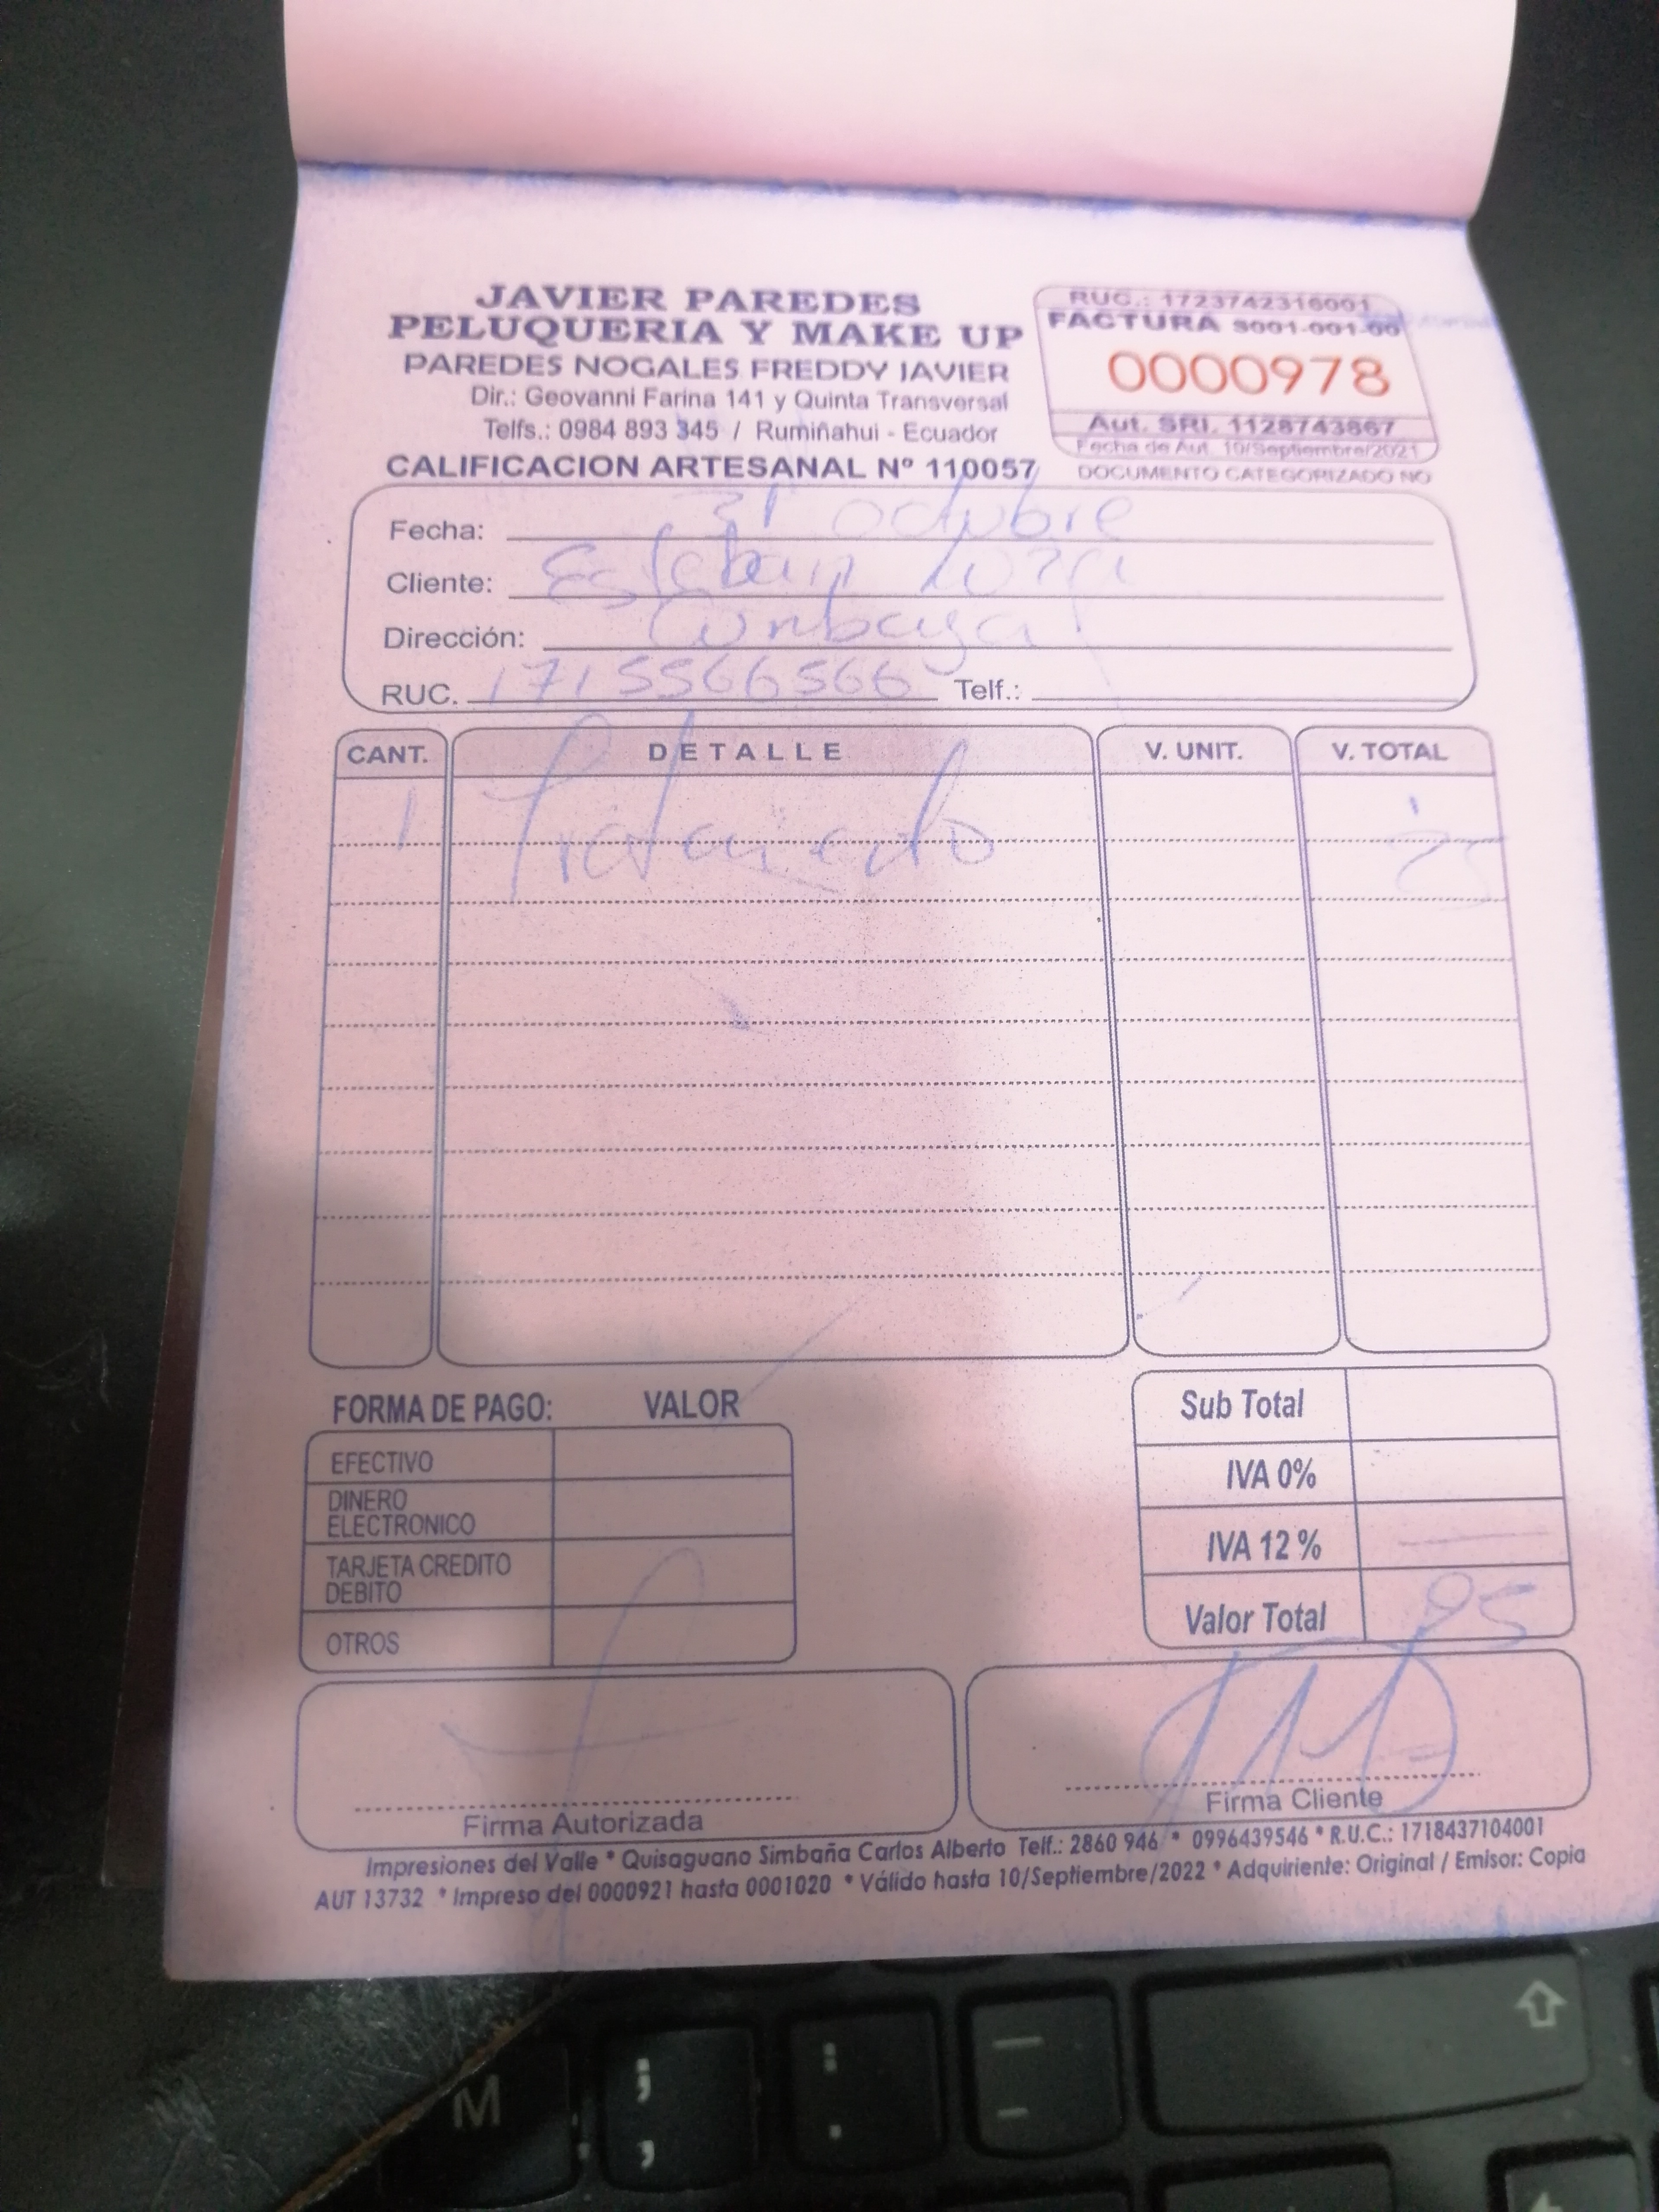 JAVIER PAREDES
PELUQUERIA Y MAKE UP
PAREDES NOGALES FREDDY JAVIER
Dir.: Geovanni Farina 141 y Quinta Transversal
Telfs.: 0984 893 345 / Rumiñahui - Ecuador
CALIFICACION ARTESANAL Nº 110057
RUC.: 1723742316001
FACTURA S001-001-00
0000978
Aut. SRI. 1128743867
Fecha de Aut. 10/Septiembre/2021
DOCUMENTO CATEGORIZADO NO
Fecha: 31 octubre
Cliente: Esteban
Dirección: Cumbaya
RUC. 1715566566 Telf.:
CANT. DETALLE V. UNIT. V. TOTAL
1 Tratamiento
FORMA DE PAGO: VALOR
EFECTIVO
DINERO
ELECTRONICO
TARJETA CREDITO
DEBITO
OTROS
Sub Total
IVA 0%
IVA 12 %
Valor Total
Firma Autorizada
Firma Cliente
Impresiones del Valle * Quisaguano Simbaña Carlos Alberto Telf.: 2860 946 * 0996439546 * R.U.C.: 1718437104001
AUT 13732 * Impreso del 0000921 hasta 0001020 * Válido hasta 10/Septiembre/2022 * Adquiriente: Original / Emisor: Copia
M
;
,
:
.